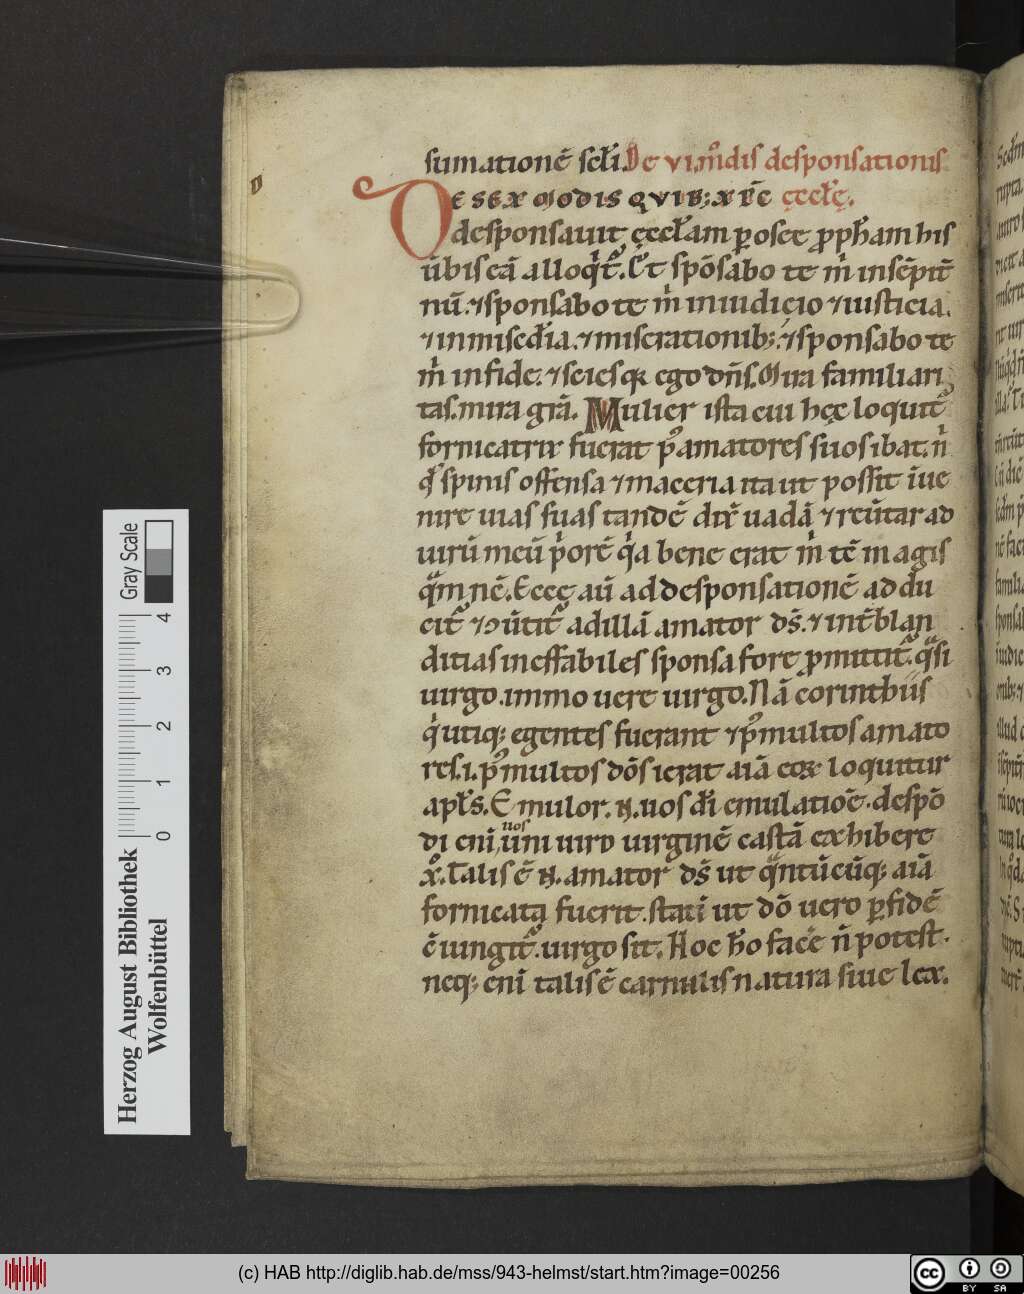 sumationē sc̄li. De vi. mōdis desponsationis
DE SEX MODIS QVIB; XP̄C ęccl̄ę.
desponsauit ęccl̄am ꝑ osee ꝓph̄am his
ūbis eā alloq̇t᷑. Et spōsabo te m̊ in sēpit̄
nū. ⁊ sponsabo te m̊ in iudicio ⁊ iusticia.
⁊ in mis̄c̄dia. ⁊ miserationib;. ⁊ sponsabo te
m̊ in fide. ⁊ scies qꝛ ego dn̄s. Mira familiari
tas. mira gr̄a. Mulier ista cui hęc loquit᷑
fornicatrix fuerat p᷒ amatores suos ibat. n̄
spinis offensa ⁊ maceria ita ut possit īue
nire uias suas tandē dix̄ uadā ⁊ reūtar ad
uirū meū p̊orē q̇a bene erat m̊ tē magis
q̄m nē. Ecce aū ad desponsationē addu
cit᷑ ⁊ ꝯūtit᷑ ad illā amator ds̄. ⁊ int̄ blan
ditias ineffabiles sponsa fore ꝓmittit᷑. q̄si
uirgo. immo uere uirgo. Nā corinthiis
q̇ utiq; egentes fuerant ⁊ p᷒ multos amato
res. i. p᷒ multos dōs ierat aiā eoꝝ loquitur
apl̄s. Emulor .n. uos dī emulatiōe. despō
di enī uos uni uiro uirginē castā exhibere
x̊. Talis ē .n. amator ds̄ ut q̄ntūcūq; aiā
fornicata fuerit. statī ut dō uero ꝑ fidē
ē iungit᷑. uirgo sit. Hoc h̄o facē n̄ potest.
neq; enī talis ē carnalis natura siue lex.
Herzog August Bibliothek
Wolfenbüttel
0 1 2 3 4
Gray Scale
(c) HAB http://diglib.hab.de/mss/943-helmst/start.htm?image=00256
cc BY SA